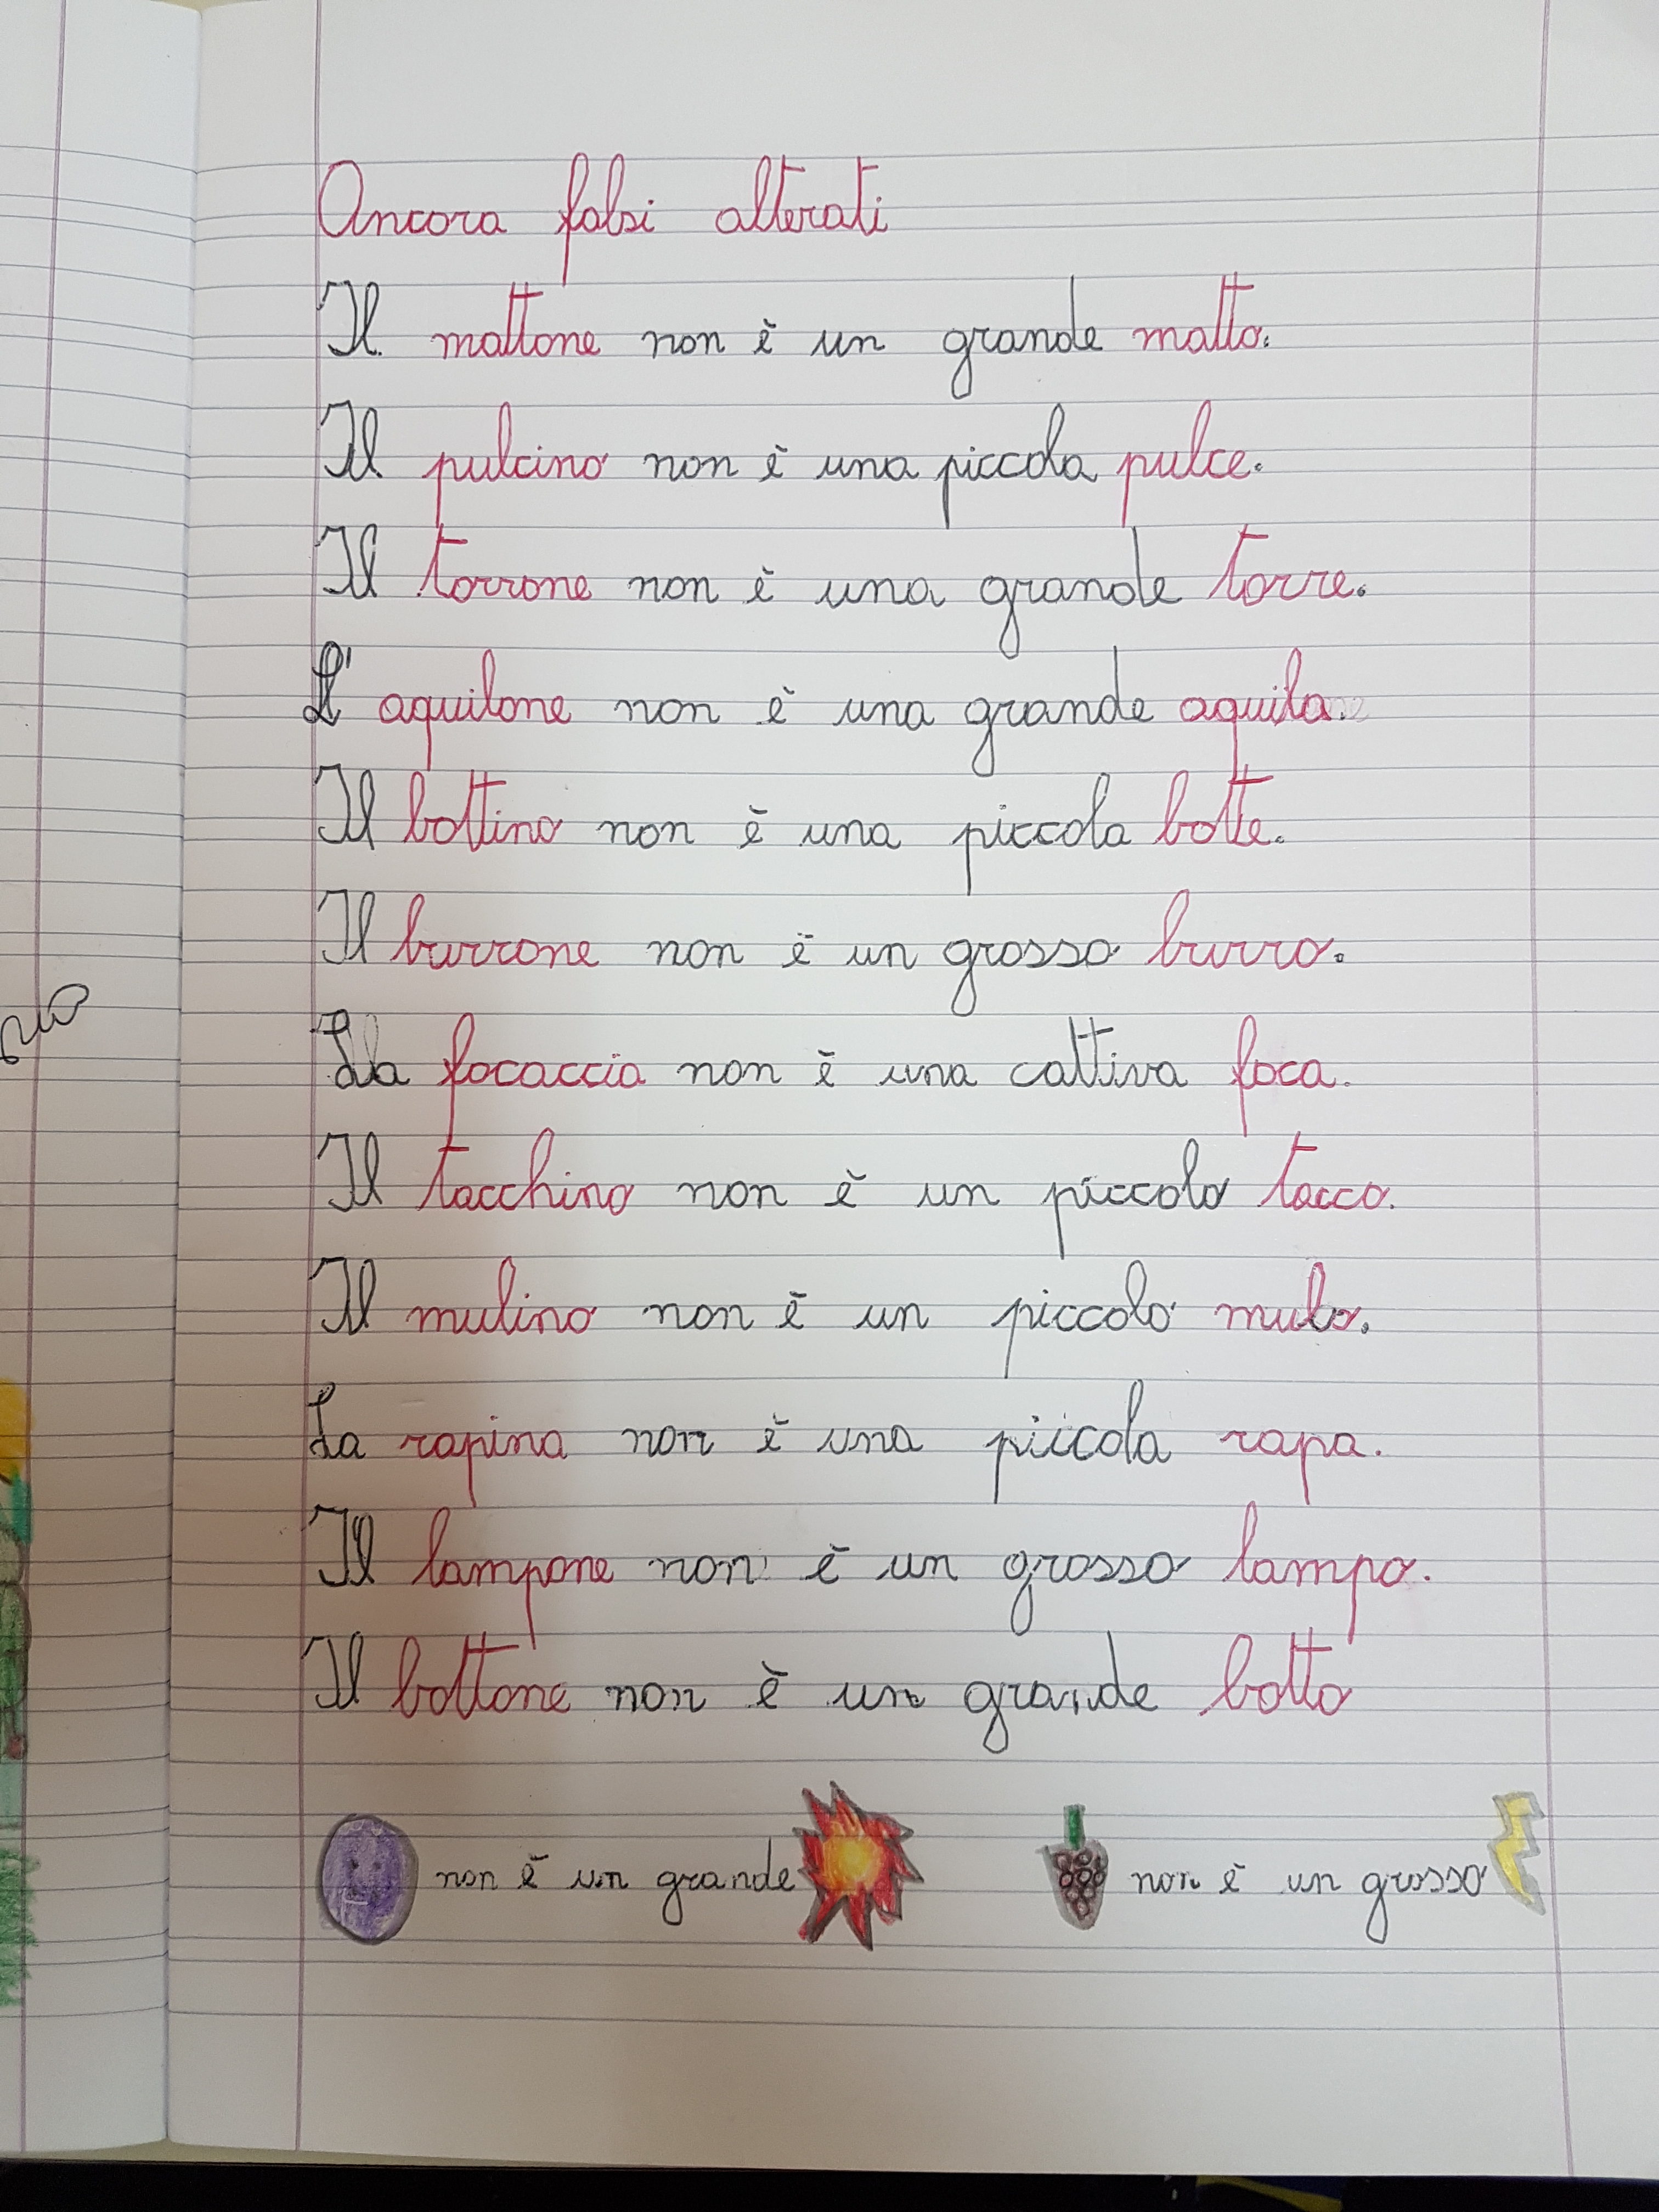 Ancora falsi alterati
Il mattone non è un grande matto.
Il pulcino non è una piccola pulce.
Il torrone non è una grande torre.
L'aquilone non è una grande aquila.
Il bottino non è una piccola botte.
Il burrone non è un grosso burro.
La focaccia non è una cattiva foca.
Il tacchino non è un piccolo tacco.
Il mulino non è un piccolo mulo.
La rapina non è una piccola rapa.
Il lampone non è un grosso lampo.
Il bottone non è un grande botto
non è un grande non è un grosso